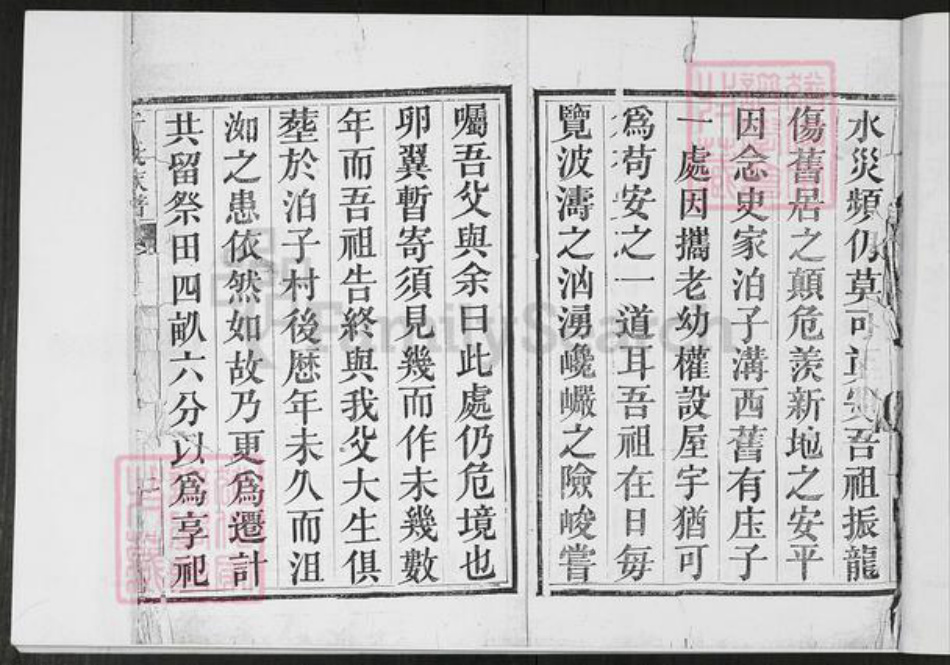 水災頻仍莫可 吾祖振龍
傷舊居之顛危羨新地之安平
因念史家泊子溝西舊有庄子
一處因攜老幼權設屋宇猶可
爲苟安之一道耳吾祖在日每
覽波濤之洶湧巉巗之險峻嘗
囑吾父與余曰此處仍危境也
卵翼暫寄須見幾而作未幾數
年而吾祖告終與我父大生俱
塟於泊子村後歷年未久而沮
洳之患依然如故乃更爲遷計
共留祭田四畝六分以爲享祀
氏族譜
FamilySearch